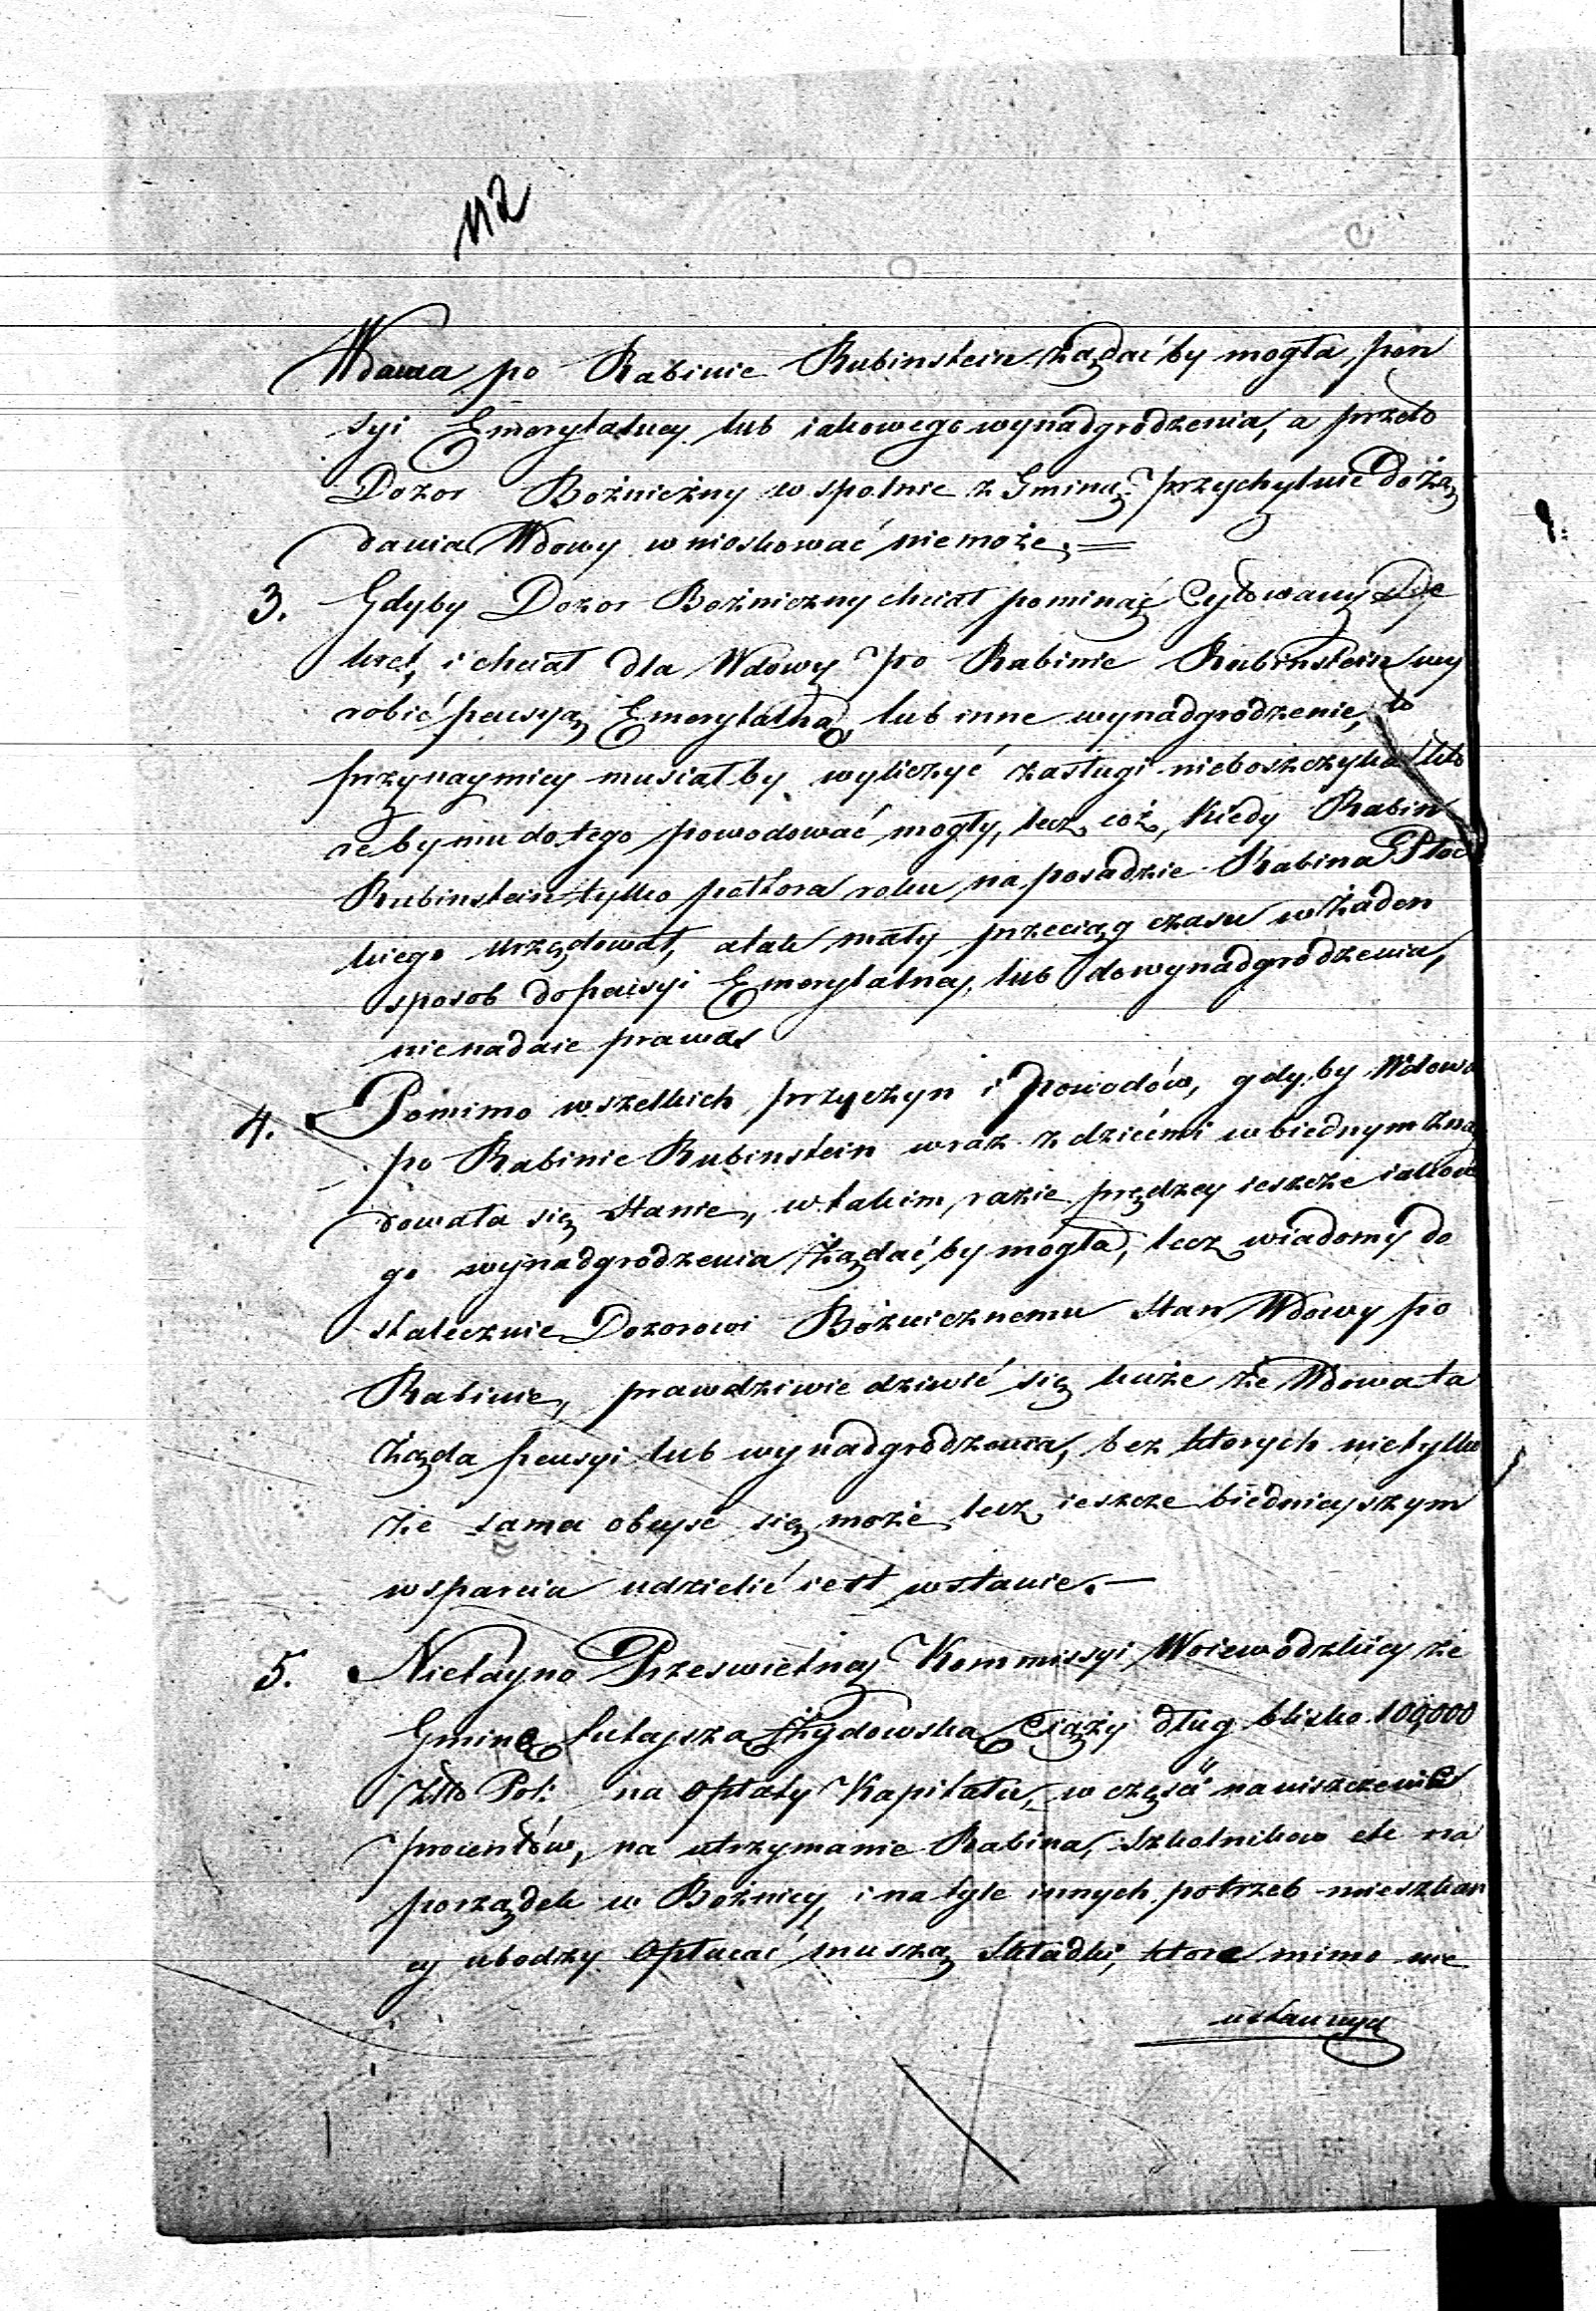 112
Wdowa po Rabinie Rubinstein żądać by mogła pen
syi Emerytalney lub iakowego wynadgrodzenia, a przeto
Dozor Bożniczny wspolnie z Gminą przychylnie do żą
dania Wdowy wnioskować nie może. =
3. Gdyby Dozor Bożniczny chciał pominąć Cytowany De
kret, i chciał dla Wdowy po Rabinie Rubinstein wy
robić pensyą Emerytalną, lub inne wynadgrodzenie, to
przynaymniey musiał by wyliczyć zasługi nieboszczyka kto
re by mu do tego powodować mogły, lecz coż, kiedy Rabin
Rubinstein tylko półtora roku na posadzie Rabina Płoc
kiego urzędował, a tak mały przeciąg czasu w żaden
sposob do pensyi Emerytalney, lub do wynadgrodzenia,
nie nadaie prawa
4. Pomimo wszelkich przyczyn i powodów, gdyby Wdowa
po Rabinie Rubinstein wraz z dziećmi w biednym zna
dowała się stanie, w takim razie prędzey ieszcze iakowe
go wynadgrodzenia żądać by mogła, lecz wiadomy do
statecznie Dozorowi Bożnicznemu stan Wdowy po
Rabinie, prawdziwie dziwić się każe że Wdowa ta
żąda pensyi lub wynadgrodzenia, bez ktorych nietylko
że sama obeyść się może, lecz ieszcze biednieyszym
wsparcia udzielić iest wstanie. —
5. Nietayno Prześwietney Kommissyi Woiewodzkiey że
Gminę tuteyszą Żydowską Ciąży dług blisko 100,000
Złto Pol: na opłaty Kapitału, w część na uiszczenie
procentów, na utrzymanie Rabina, Szkolnikow etc na
porządek w Bożnicy, i na tyle innych potrzeb mieszkań
cy ubodzy Opłacać muszą składki, ktore mimo nie
ustannych